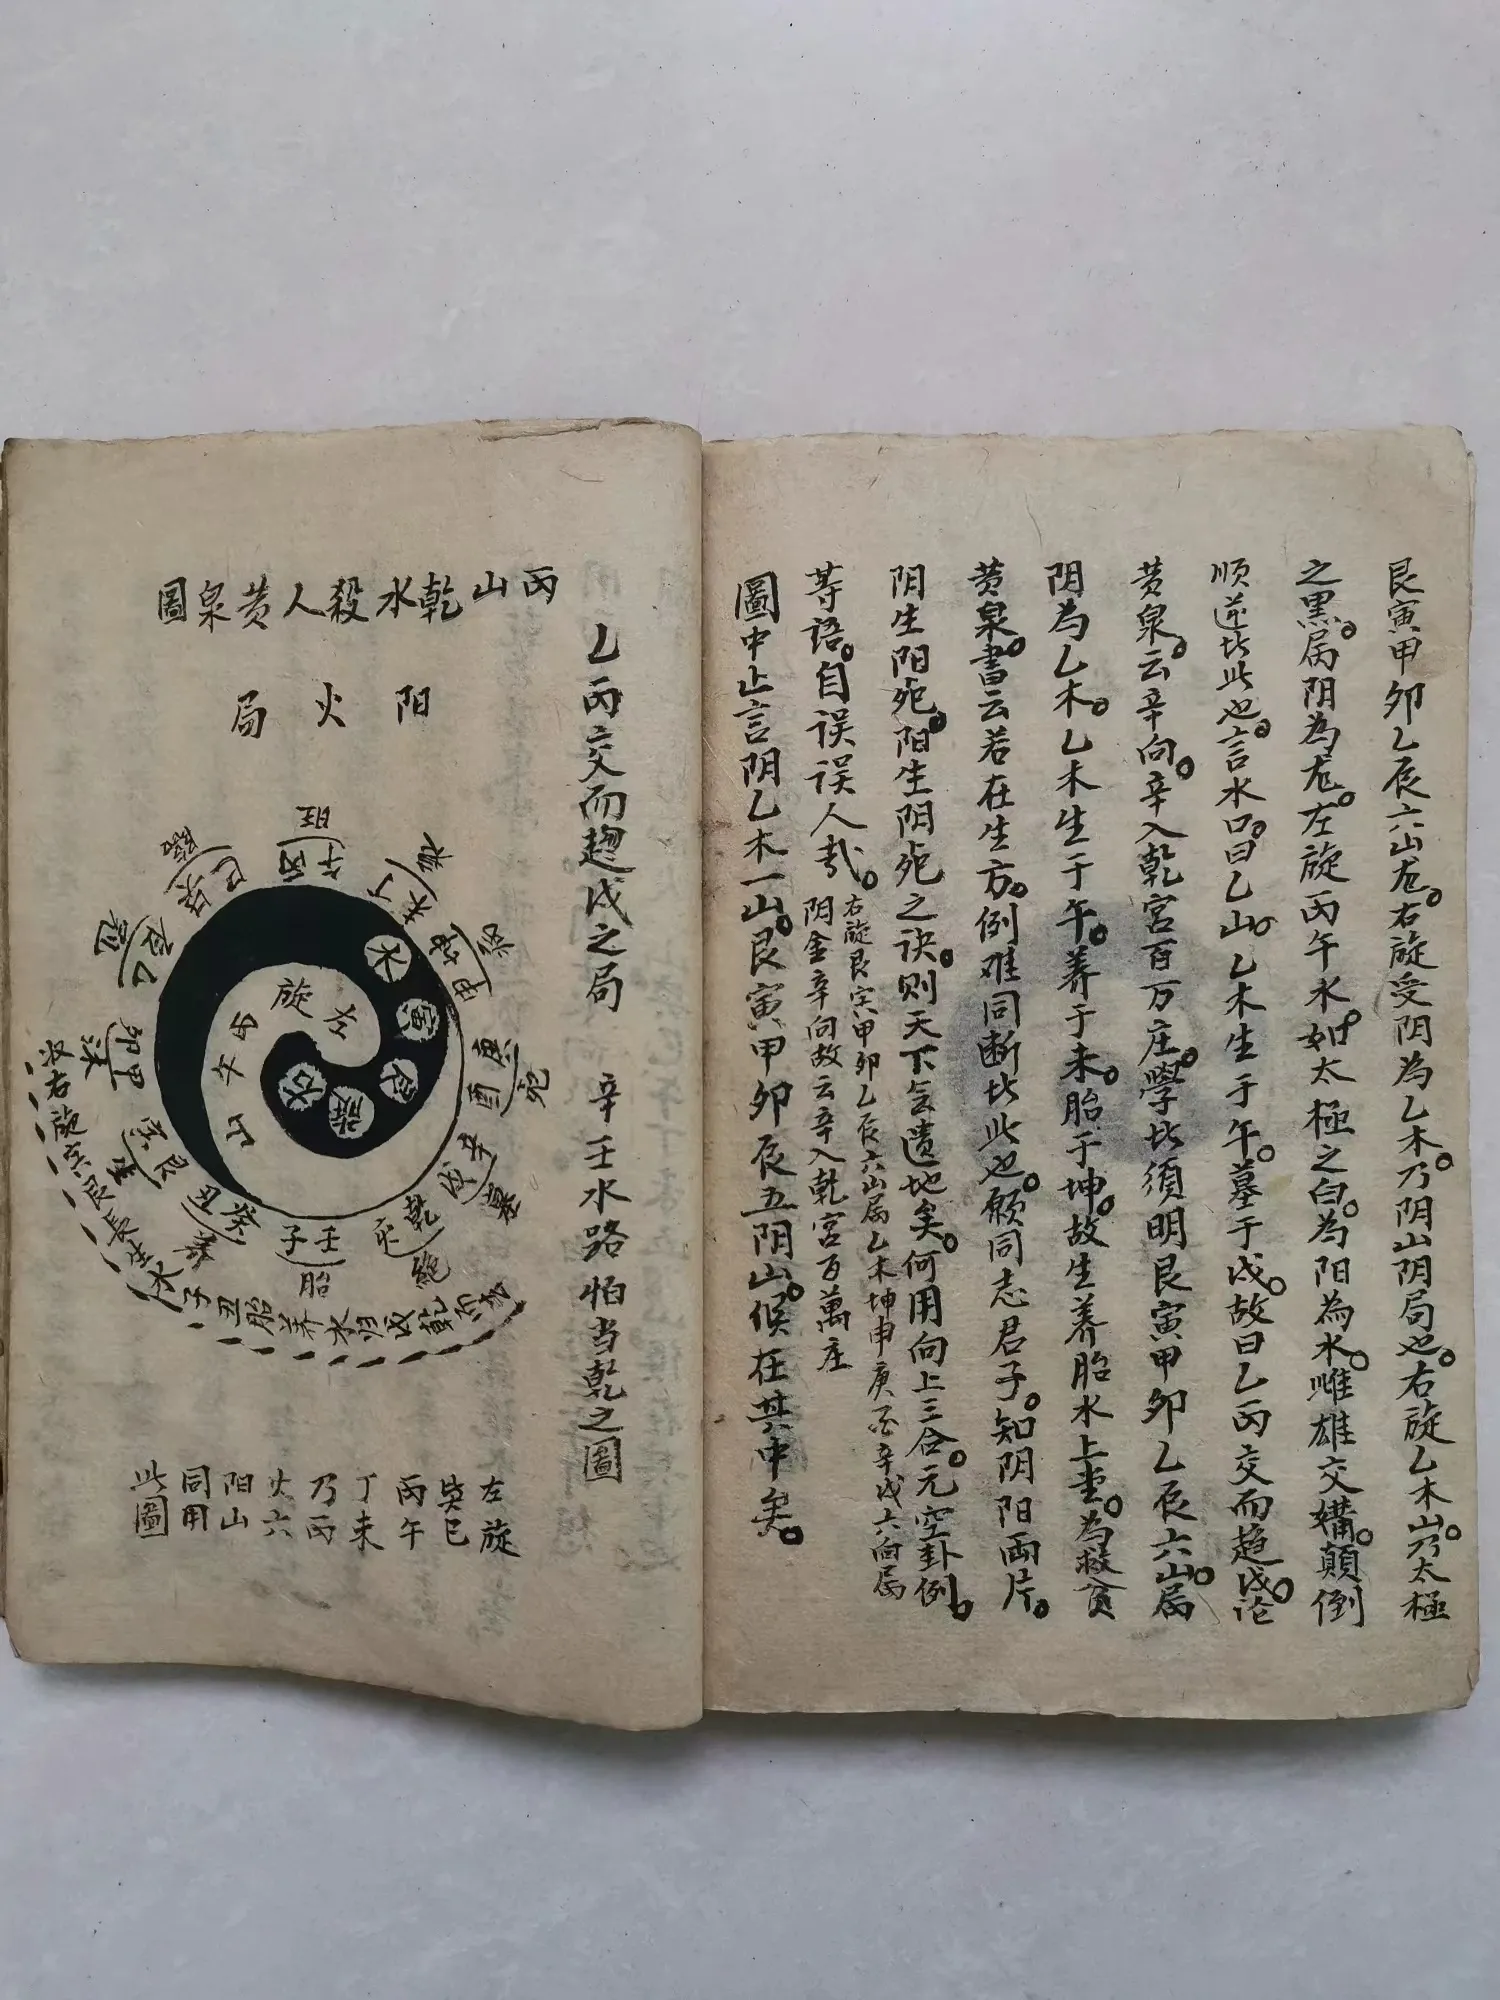 艮寅甲卯乙辰六山龙。右旋受阴为乙木。乃阴山阴局也。右旋乙木山。乃太極
之黑。属阴为龙。左旋丙午水。如太極之白。为阳為水。雌雄交媾。顛倒
顺逆圵此也。言水口。曰乙山。乙木生于午。墓于戌。故曰乙丙交而趋戌。论
黄泉。云辛向。辛入乾宮百万庄。學圵須明艮寅甲卯乙辰六山。局
阴为乙木。乙木生于午。养于未。胎于坤。故生养胎水上堂。为救貧
黄泉。書云若在生方。例难同断圵此也。願同志君子。知阴阳両片。
阴生阳死。阳生阴死之诀。则天下无遗地矣。何用向上三合。元空卦例。
等语。自误误人哉。
右旋艮寅甲卯乙辰六山属乙木坤申庚酉辛戌六向属
阴金辛向故云辛入乾宮百萬庄
圖中止言阴乙木一山。艮寅甲卯辰五阴山。候在其中矣。
乙丙交而趨戌之局 辛壬水路怕当乾之圖
丙山乾水殺人黄泉圖
阳火局
旺
午丙
丁未
坤申
庚酉
死
辛戌
墓
乾亥
絶
壬子
胎
癸丑
养
艮寅
生
甲卯
沐
乙辰
冠
巽巳
臨
左旋
丙午山
水
寅
右旋
左旋
巽巳
丙午
丁未
乃丙
火六
阳山
同用
此圖